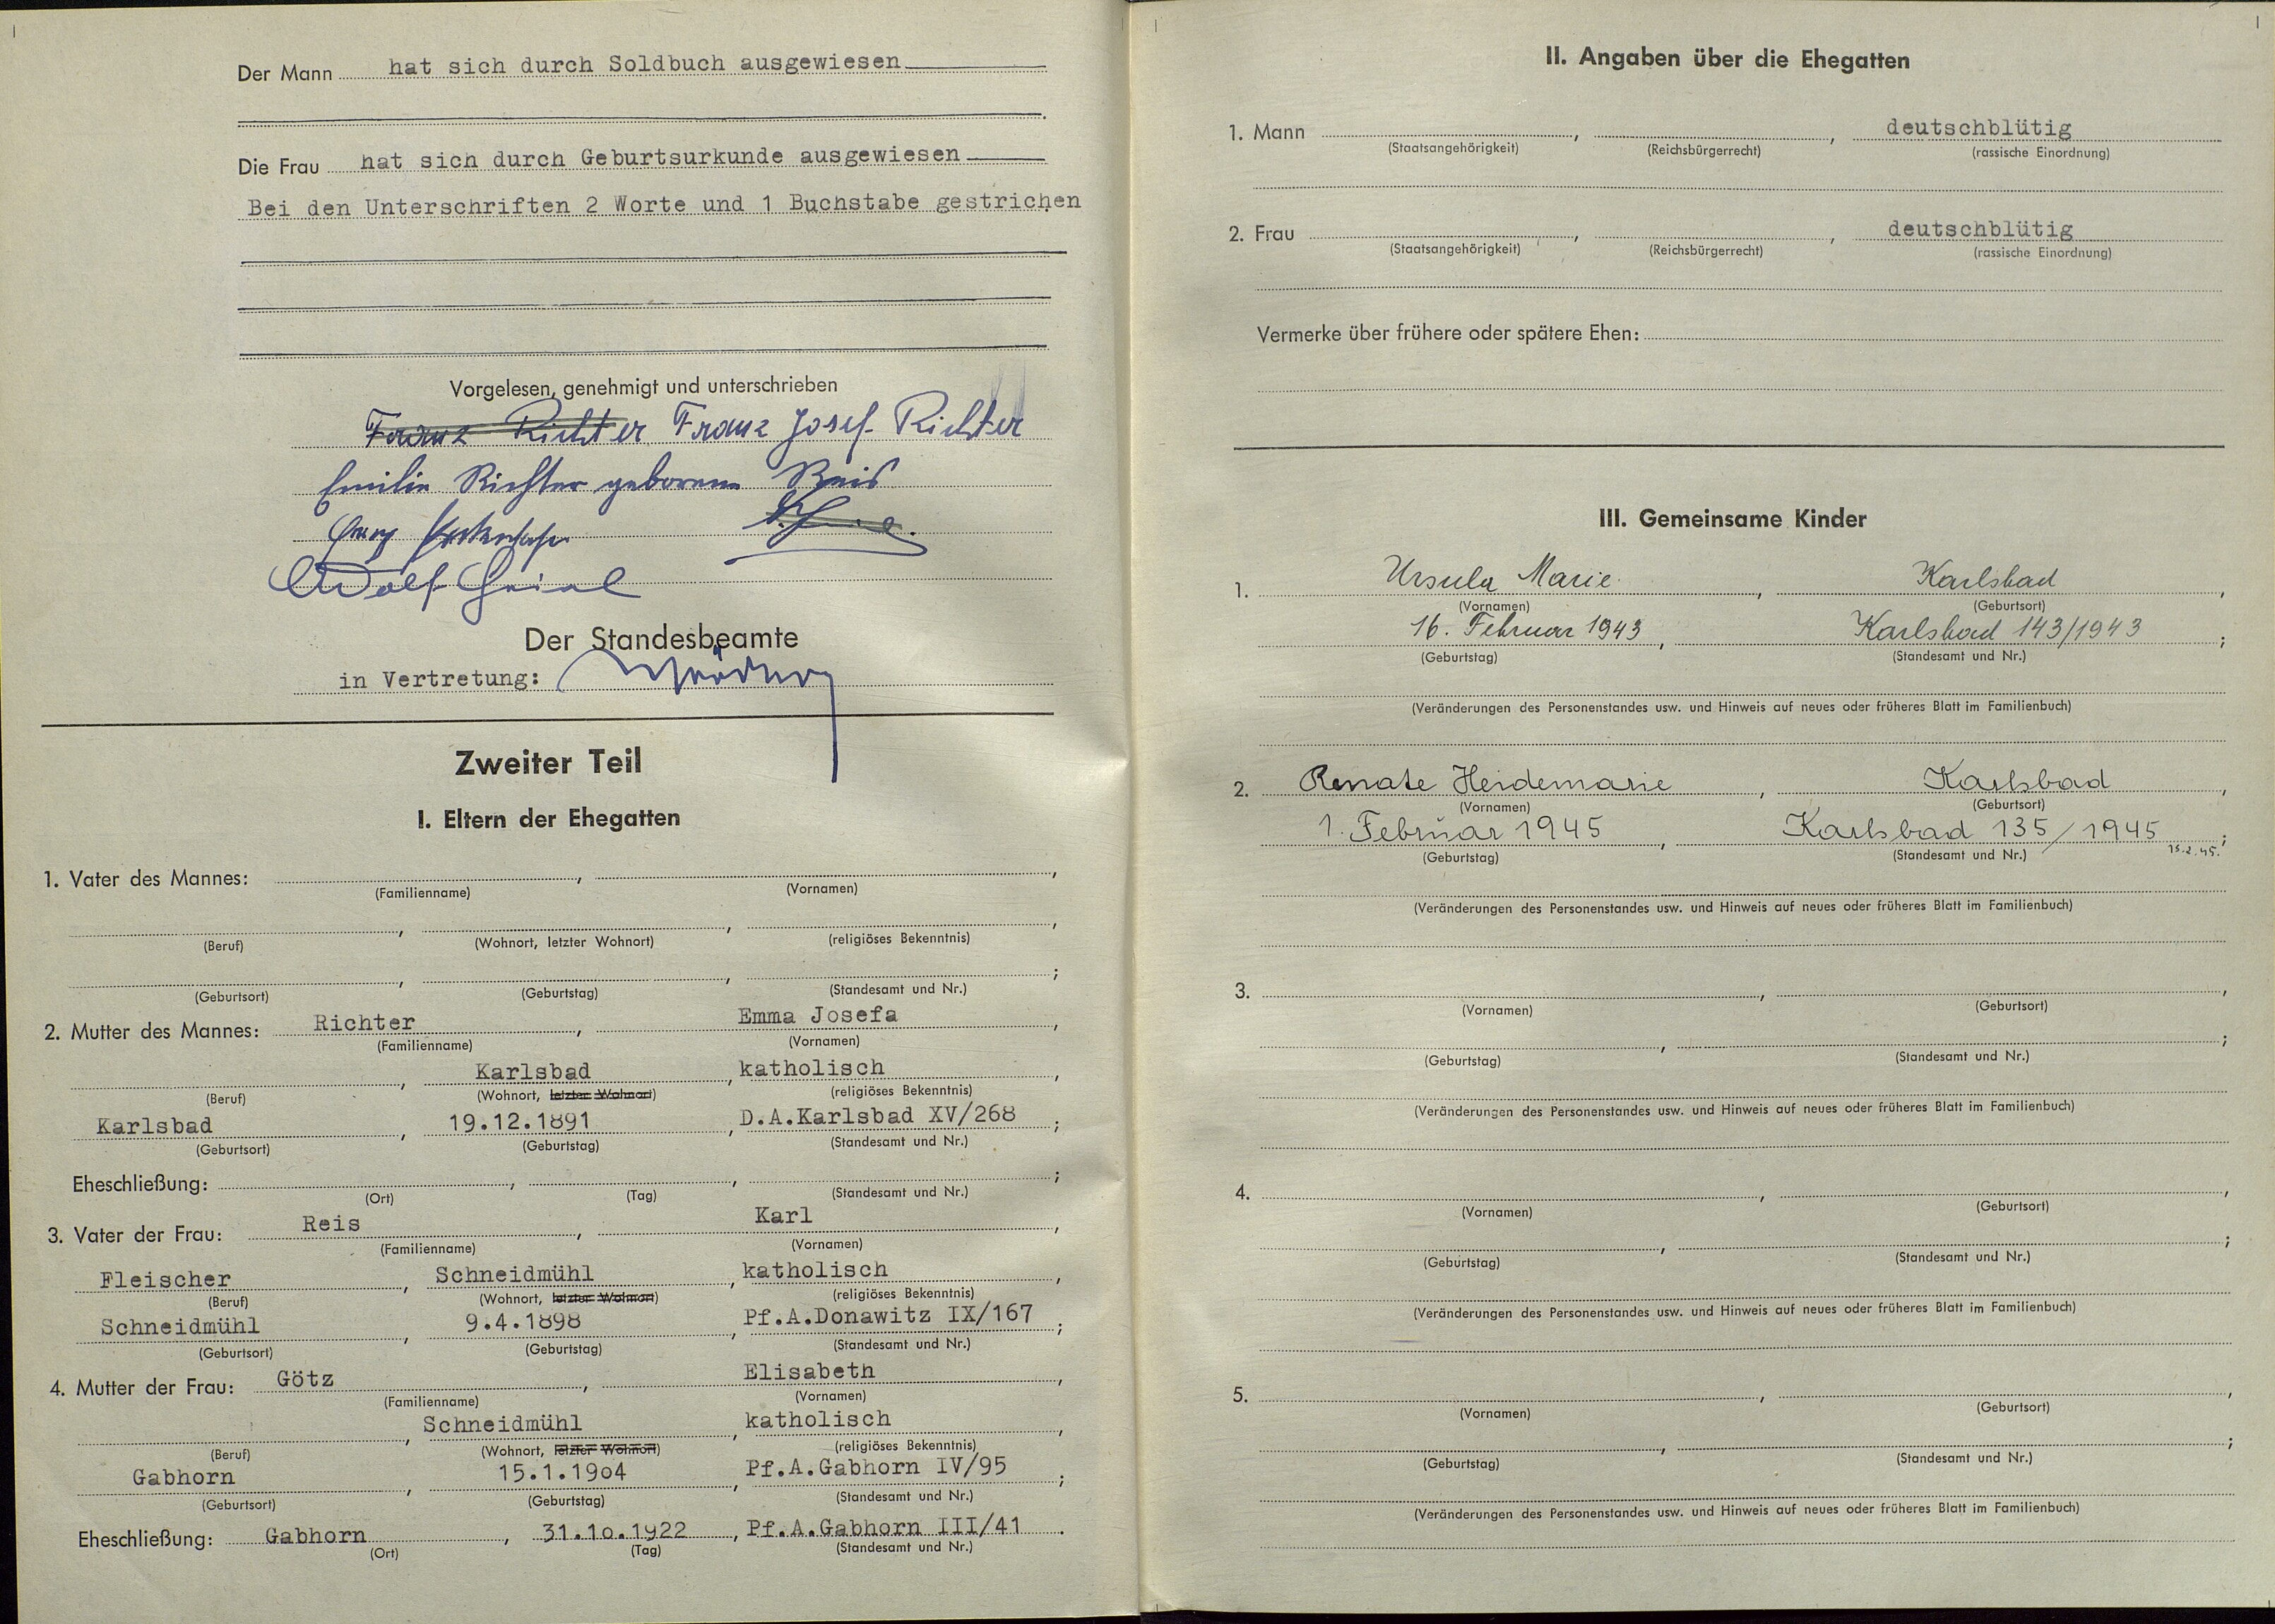 Der Mann hat sich durch Soldbuch ausgewiesen
.
Die Frau hat sich durch Geburtsurkunde ausgewiesen
Bei den Unterschriften 2 Worte und 1 Buchstabe gestrichen
Vorgelesen, genehmigt und unterschrieben
Franz Richter Franz Josef Richter
Emilie Richter geborene Reis
Adolf
Der Standesbeamte
in Vertretung:
Zweiter Teil
I. Eltern der Ehegatten
1. Vater des Mannes: , ,
(Familienname) (Vornamen)
, , ,
(Beruf) (Wohnort, letzter Wohnort) (religiöses Bekenntnis)
, , ;
(Geburtsort) (Geburtstag) (Standesamt und Nr.)
2. Mutter des Mannes: Richter , Emma Josefa ,
(Familienname) (Vornamen)
, Karlsbad , katholisch ,
(Beruf) (Wohnort, letzter Wohnort) (religiöses Bekenntnis)
Karlsbad , 19.12.1891 , D.A.Karlsbad XV/268 ;
(Geburtsort) (Geburtstag) (Standesamt und Nr.)
Eheschließung: , , ;
(Ort) (Tag) (Standesamt und Nr.)
3. Vater der Frau: Reis , Karl ,
(Familienname) (Vornamen)
Fleischer , Schneidmühl , katholisch ,
(Beruf) (Wohnort, letzter Wohnort) (religiöses Bekenntnis)
Schneidmühl , 9.4.1898 , Pf.A.Donawitz IX/167 ;
(Geburtsort) (Geburtstag) (Standesamt und Nr.)
4. Mutter der Frau: Götz , Elisabeth ,
(Familienname) (Vornamen)
, Schneidmühl , katholisch ,
(Beruf) (Wohnort, letzter Wohnort) (religiöses Bekenntnis)
Gabhorn , 15.1.19o4 , Pf.A.Gabhorn IV/95 ;
(Geburtsort) (Geburtstag) (Standesamt und Nr.)
Eheschließung: Gabhorn , 31.1o.1922 , Pf.A.Gabhorn III/41 .
(Ort) (Tag) (Standesamt und Nr.)
II. Angaben über die Ehegatten
1. Mann , , deutschblütig
(Staatsangehörigkeit) (Reichsbürgerrecht) (rassische Einordnung)
2. Frau , , deutschblütig
(Staatsangehörigkeit) (Reichsbürgerrecht) (rassische Einordnung)
Vermerke über frühere oder spätere Ehen:
III. Gemeinsame Kinder
1. Ursula Marie , Karlsbad ,
(Vornamen) (Geburtsort)
16. Februar 1943 , Karlsbad 143/1943 ;
(Geburtstag) (Standesamt und Nr.)
(Veränderungen des Personenstandes usw. und Hinweis auf neues oder früheres Blatt im Familienbuch)
2. Renate Heidemarie , Karlsbad ,
(Vornamen) (Geburtsort)
1. Februar 1945 , Karlsbad 135/1945 ;
15.2.45.
(Geburtstag) (Standesamt und Nr.)
(Veränderungen des Personenstandes usw. und Hinweis auf neues oder früheres Blatt im Familienbuch)
3. , ,
(Vornamen) (Geburtsort)
, ;
(Geburtstag) (Standesamt und Nr.)
(Veränderungen des Personenstandes usw. und Hinweis auf neues oder früheres Blatt im Familienbuch)
4. , ,
(Vornamen) (Geburtsort)
, ;
(Geburtstag) (Standesamt und Nr.)
(Veränderungen des Personenstandes usw. und Hinweis auf neues oder früheres Blatt im Familienbuch)
5. , ,
(Vornamen) (Geburtsort)
, ;
(Geburtstag) (Standesamt und Nr.)
(Veränderungen des Personenstandes usw. und Hinweis auf neues oder früheres Blatt im Familienbuch)